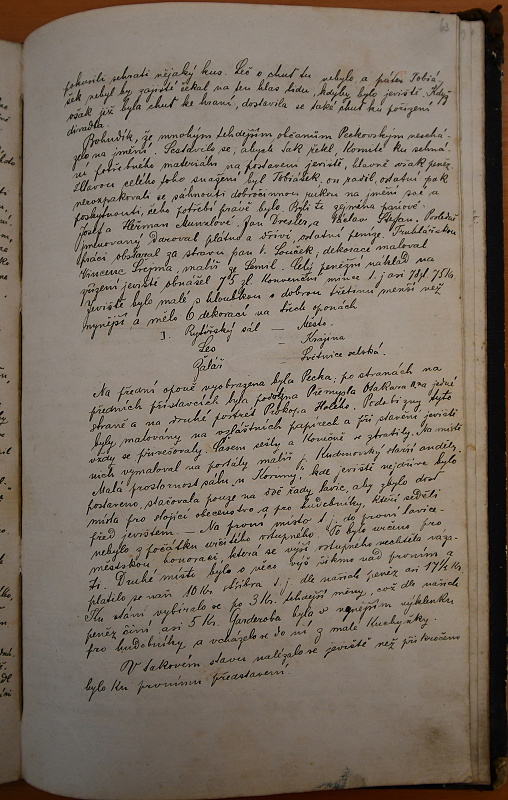 pokusili sehrati nějaký kus. Leč o chuť tu nebylo a páter Tobiá-
šek nebyl by zajisté čekal na ten hlas lidu, kdyby bylo jeviště. Když
však již byla chuť ke hraní, dostavila se také chuť ku pořízení
divadla.
Bohudík, že mnohým tehdejším občanům Peckovským neschá-
zelo na jmění. Sestavilo se, abych tak řekl, komité ku sehná-
ní potřebného materiálu na postavení jeviště, hlavně však peněz.
Hlavou celého toho snažení byl Tobiášek, on radil, ostatní pak
neropakovali se sáhnouti dobročinnou rukou na jmění své a
poskytnouti, čeho potřebí právě bylo. Byli to zejména pánové:
Josef a Heřman Munzlové, Jan Drexler, a Václav Stefan. Poslední
jmenovaný daroval plátno a dříví, ostatní peníze. Truhlářskou
práci obstaral za stravu pan i. Souček, dekorace maloval
Vincenc Šrejma, malíř ze Semil. Celý peněžní náklad na
zřízení jeviště obnášel 75 zl. konvenční mince t. j. asi 78 zl 75 kr.
Jeviště bylo malé, s hloubkou o dobrou třetinu menší než
nynější a mělo 6 dekorací na třech oponách
I. Rytířský sál — Město.
Les — Krajina
Žalář — Světnice selská.
Na přední oponě vyobrazena byla Pecka, po stranách na
předních přístavcích byla podobizna Přemysla Otakara II. na jedné
straně a na druhé portrét Prokopa Holého. Podobizny tyto
byly malovány na zvláštních papírech a při stavění jeviště
vždy se připevňovaly. Časem sešly a konečně se ztratily. Na místě
nich vymaloval na portály malíř Kudrnovský starší anděly.
Malá prostornost sálu „u Koruny", kde jeviště nejdříve bylo
postaveno, stačovala pouze na dvě řady lavic, aby zbylo dost
místa pro stojící obecenstvo a pro hudebníky, kteří seděli
před jevištěm. — Na první místo t. j. do první lavice
nebylo z počátku určitého vstupného. To bylo určeno pro
městskou honoraci která se výší vstupného nechtěla vaza-
ti. Druhé místo bylo o něco výš šikmo nad prvním a
platilo se naň 10 kr. stříbra t. j. dle našich peněz asi 17½ kr.
Ku stání vybíralo se po 3 kr. tehdejší měny, což dle našich
peněz činí asi 5 kr. Garderoba byla v nynějším výklenku
pro hudebníky, a vcházelo se do ní z malé kuchyňky.
V takovém stavu nalézalo se jeviště než přikročeno
bylo ku prvnímu představení.